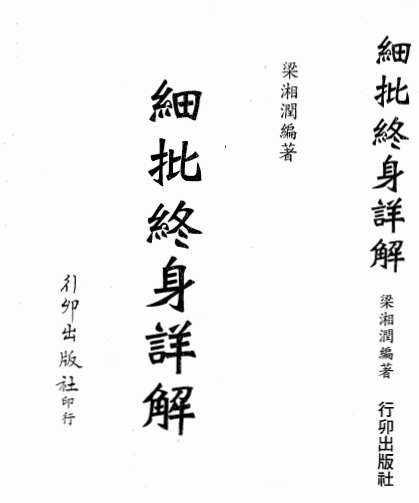 細批終身詳解
梁湘潤編著
行卯出版社
梁湘潤編著
細批終身詳解
行卯出版社印行